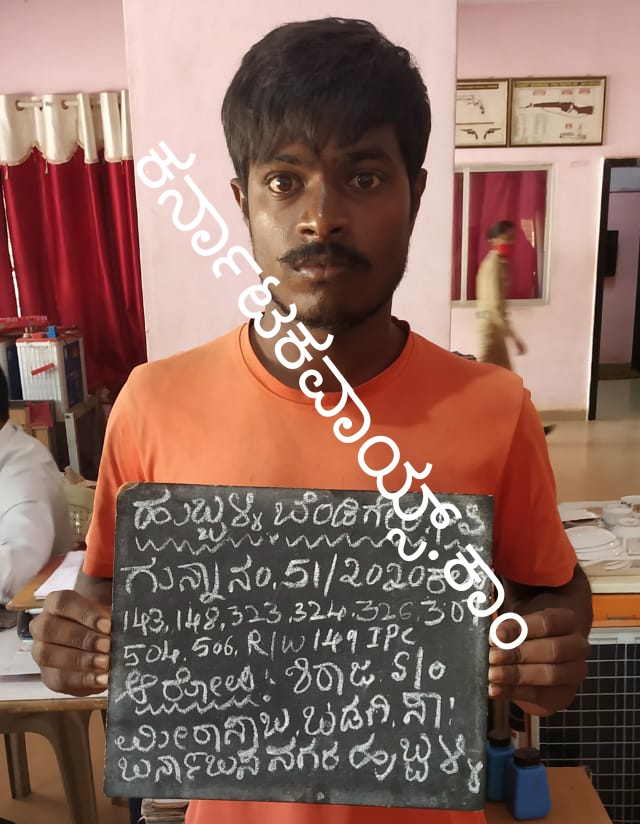 ಕರ್ನಾಟಕವಾಯ್ಸ್.ಕಾಂ
ಹುಬ್ಬಳ್ಳಿ ಬೆಂಡಿಗೇರಿ
ಗುನ್ನಾ ನಂ. 51/2020 ಕಲಂ
143, 148, 323, 324, 326, 307
504, 506, R/W 149 IPC
ಆರೋಪಿ: S/o
ಬಡಗಿ, ಸಾ:
ನಗರ ಹುಬ್ಬಳ್ಳಿ